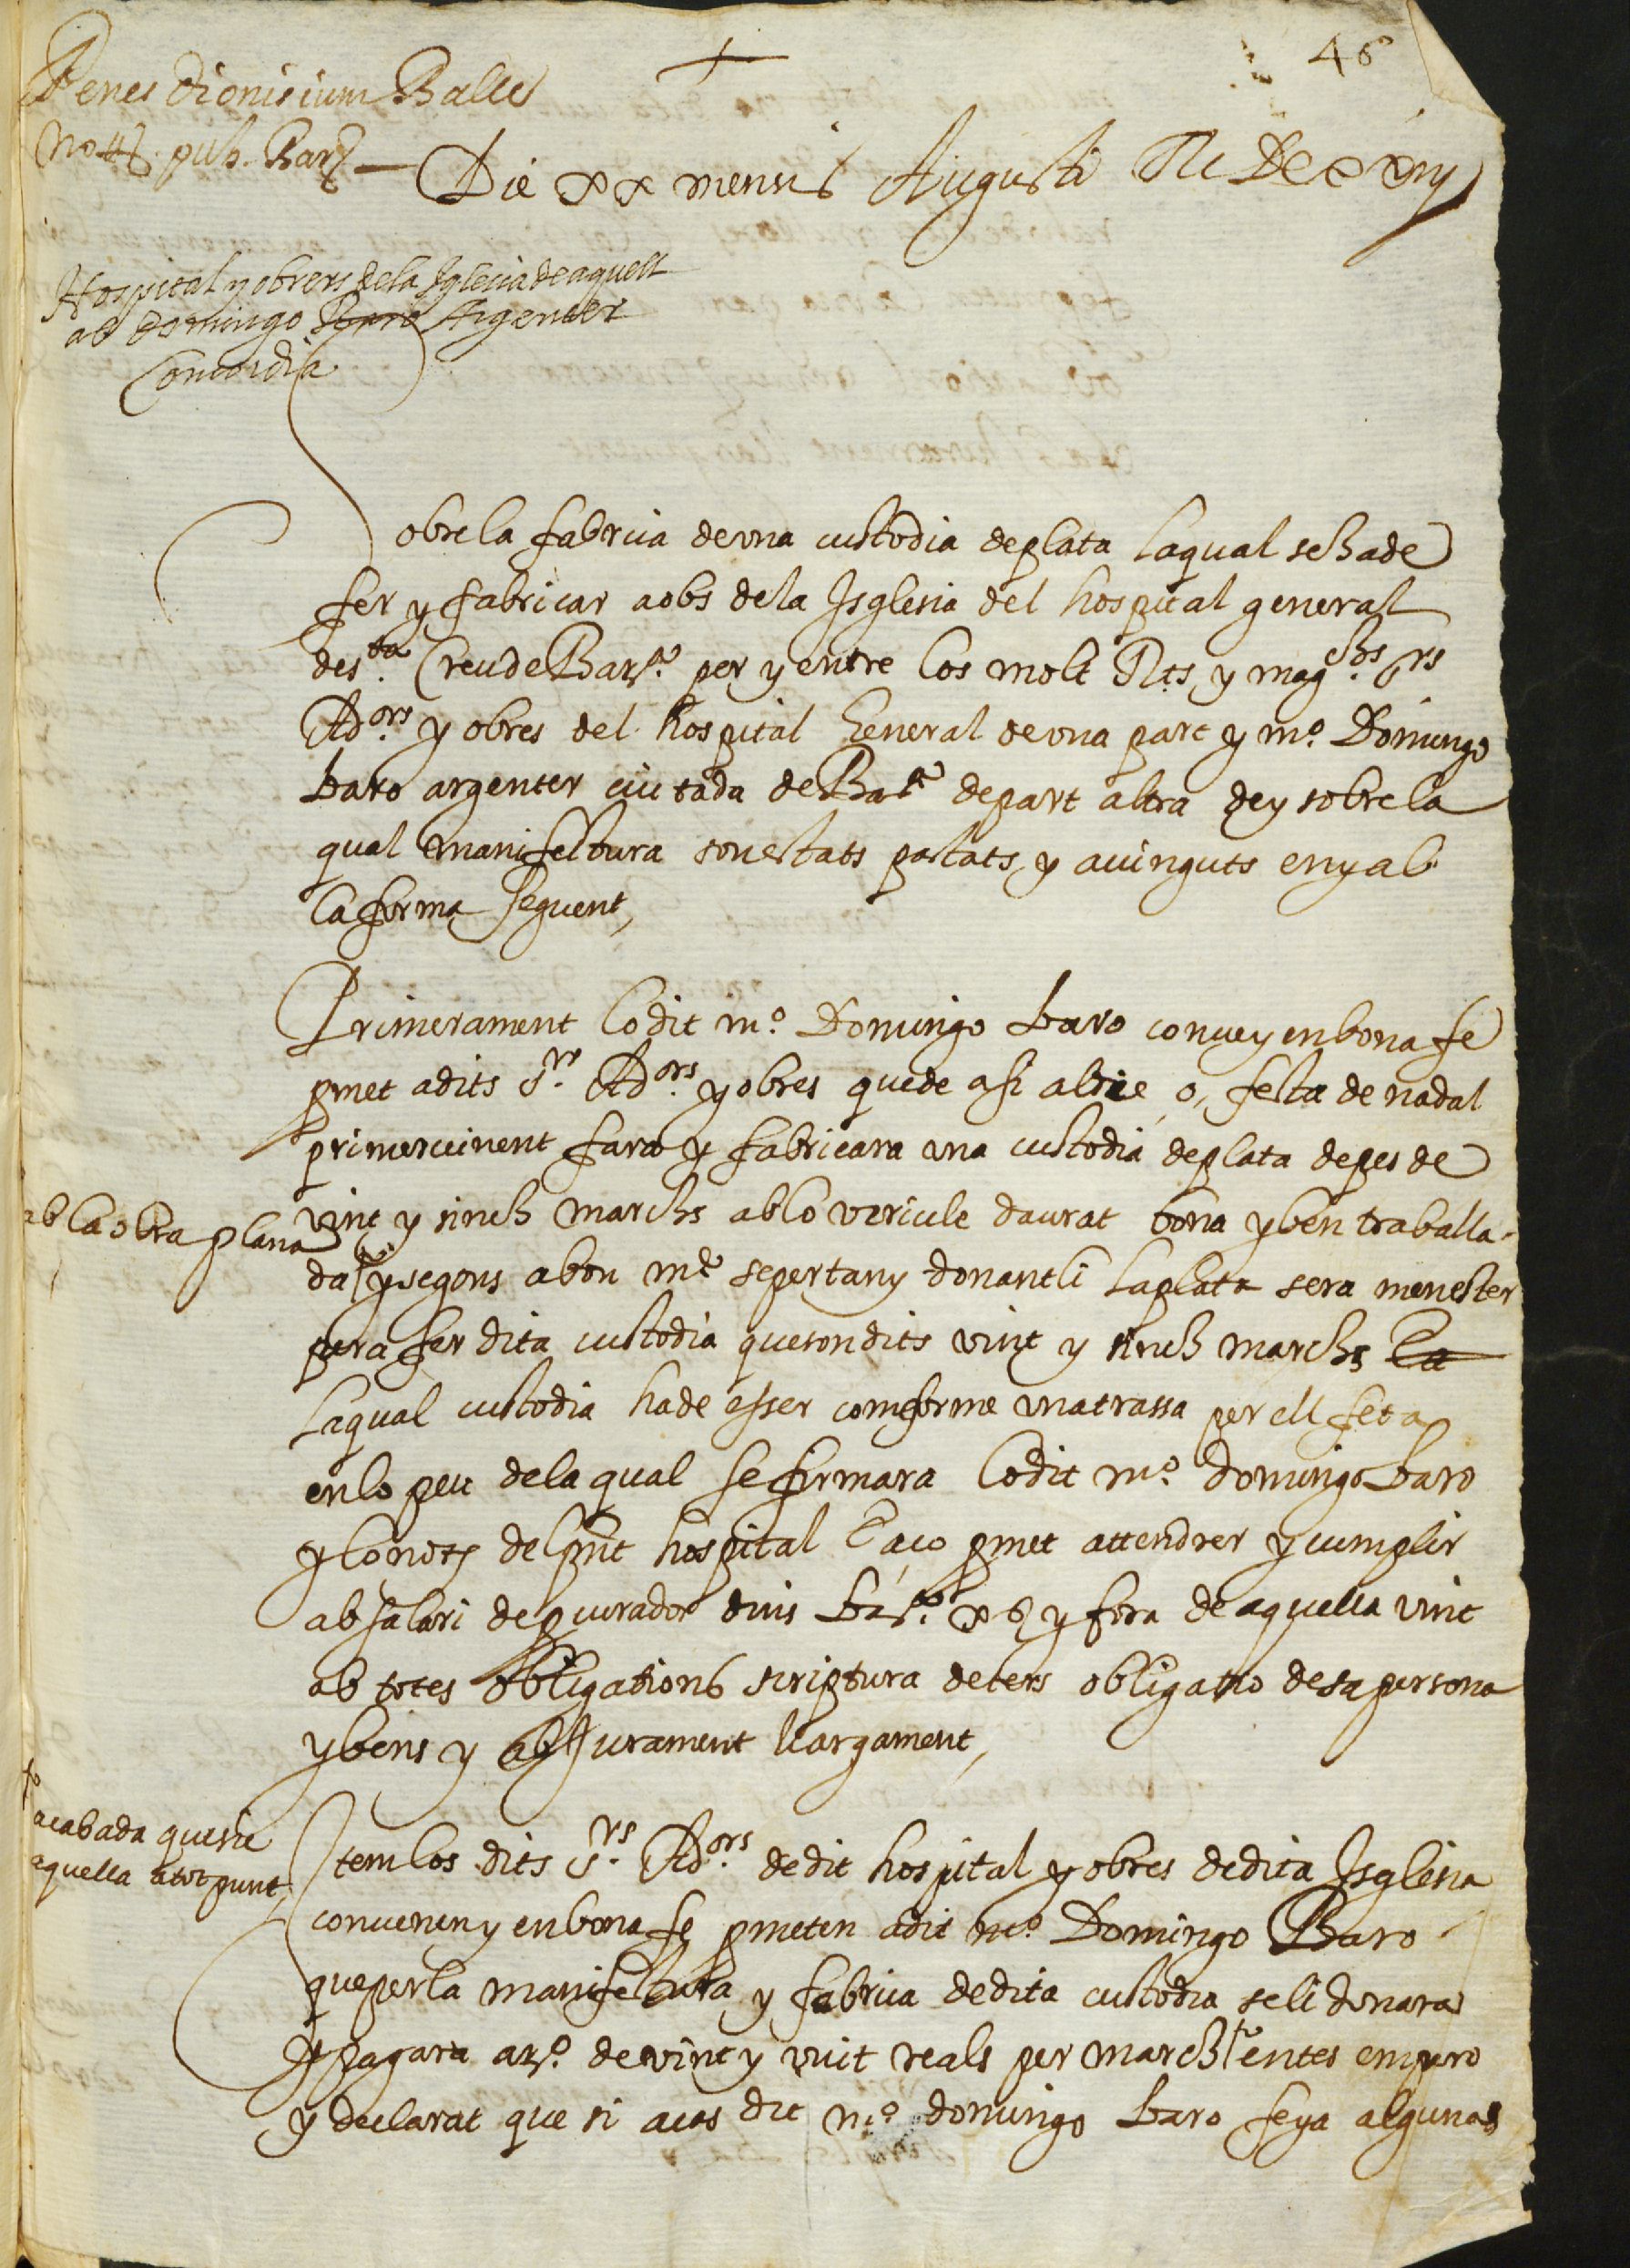 +
46
Penes Dionisium Balle
nott. pub. Bar.
Die xx mensis Augusti
Hospital y obrers dela Iglesia de aquell
ab Domingo Argenter
Concordia
Sobre la fabrica de una custodia de plata laqual se ha de
fer y fabricar a obs dela Isglesia del hospital general
de s.ta Creu de Bar.na per y entre los molt R.ts y mag.chs s.rs
Ad.ors y obres del hospital General de una part y m.o Domingo
baro argenter ciutada de Bar.na de part altra de y sobre la
qual manifeltura son estats pactats y avinguts en y ab
la forma seguent,
Primerament lo dit m.o Domingo baro conve y en bona fe
pmet a dits s.rs Ad.ors y obres que de assi al die o, festa de nadal
primer vinent fara y fabricara una custodia de plata de pes de
vint y sinch marchs ab lo vericule daurat bona y ben traballa-
ab la obra plana
da y segons a bon m.e se pertany donantli la plata sera menester
pera fer dita custodia que son dits vint y sinch marchs
Laqual custodia ha de esser comforme una trassa per ell feta
en lo peu dela qual se firmara lo dit m.o domingo baro
y lo not. del pnt hospital E aço pmet attendrer y cumplir
ab salari de pcurador dins Bar.na x s y fora de aquella vint
ab totes obligations scriptura de ters obligatio de sa persona
y bens y ab jurament llargament,
acabada que sie
aquella a tot punt,
Item los dits s.rs Ad.ors de dit hospital y obres de dita Isglesia
convenen y en bona fe pmeten a dit m.o Domingo Baro
que per la manifeltura y fabrica de dita custodia se li donara
y pagara a raho de vint y vuit reals per march entes empero
y declarat que si acas dit m.o domingo baro feya algunas